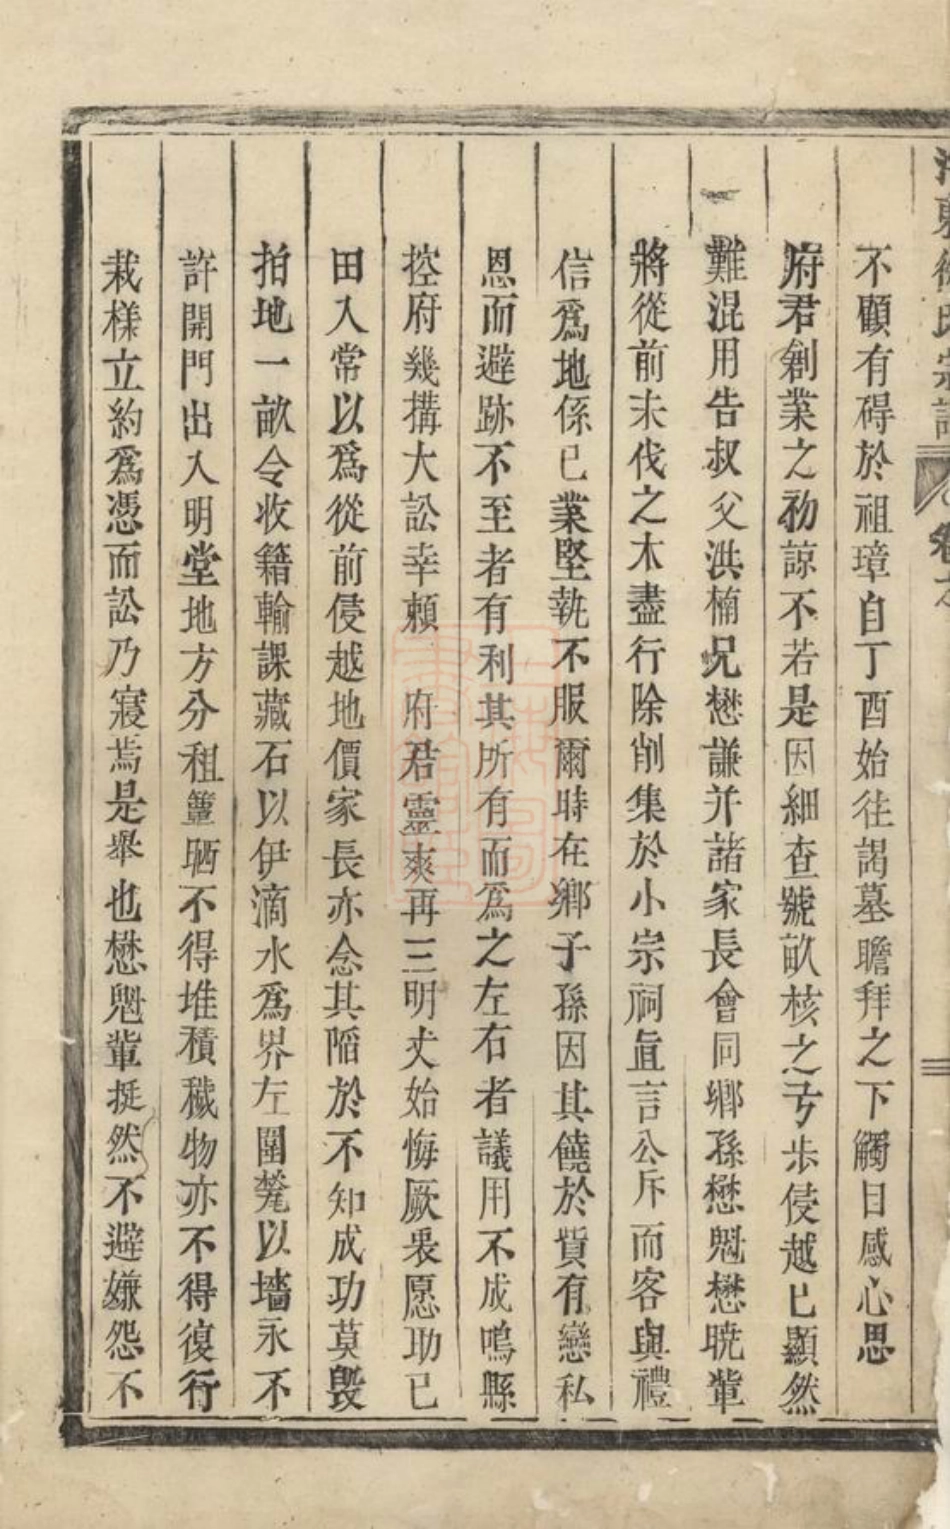 不顧有碍於祖璋自丁酉始往謁墓瞻拜之下觸目感心思
府君創業之初諒不若是因細查號畝核之弓步侵越已顯然
難混用告叔父洪楠兄懋謙并諸家長會同鄉孫懋魁懋曉輩
將從前未伐之木盡行除削集於小宗祠直言公斥而客與禮
信爲地係已業堅執不服爾時在鄉子孫因其饒於貲有戀私
恩而避跡不至者有利其所有而爲之左右者議用不成鳴縣
控府幾搆大訟幸賴 府君靈爽再三明丈始悔厥衷愿助已
田入常以爲從前侵越地價家長亦念其陷於不知成功莫毀
拍地一畝令收籍輸課藏石以伊滴水爲界左圍凳以墻永不
許開門出入明堂地方分租簟晒不得堆積穢物亦不得復行
栽樣立約爲憑而訟乃寢焉是舉也懋魁輩挺然不避嫌怨不